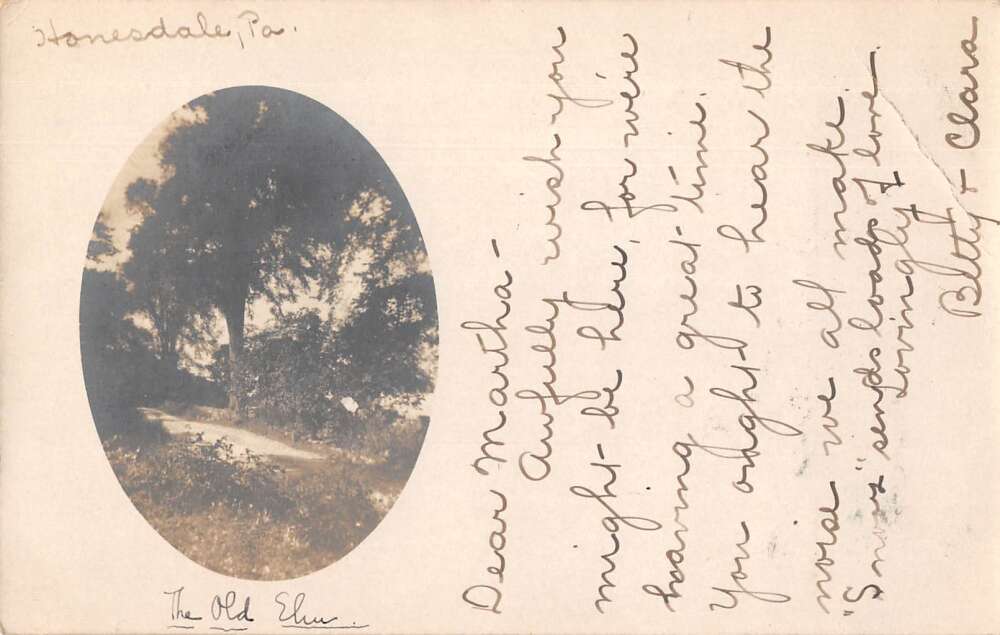 Honesdale, Pa.
The Old Elm.
Dear Martha-
Awfully wish you
might be here, for we're
having a great time.
You ought to hear the
noise we all make.
sends loads of love.
Lovingly
Betty & Clara